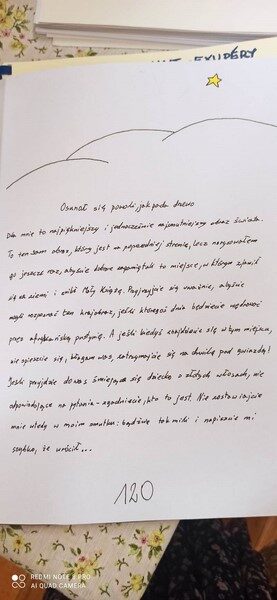 EXUPÉRY
Osunął się powoli, jak pada drzewo
Dla mnie to najpiękniejszy i jednocześnie najsmutniejszy obraz świata.
To ten sam obraz, który jest na poprzedniej stronie, lecz narysowałem
go jeszcze raz, abyście dobrze zapamiętali to miejsce, w którym zjawił
się na ziemi i znikł Mały Książę. Przyjrzyjcie się uważnie, abyście
mogli rozpoznać ten krajobraz, jeśli któregoś dnia będziecie wędrować
przez afrykańską pustynię. A jeśli kiedyś znajdziecie się w tym miejscu,
nie spieszcie się, błagam was, zatrzymajcie się na chwilkę pod gwiazdą!
Jeśli przyjdzie do was śmiejące się dziecko o złotych włosach, nie
odpowiadające na pytania - zgadniecie, kto to jest. Nie zostawiajcie
mnie wtedy w moim smutku: bądźcie tak mili i napiszcie mi
szybko, że wrócił...
120
REDMI NOTE 8 PRO
AI QUAD CAMERA